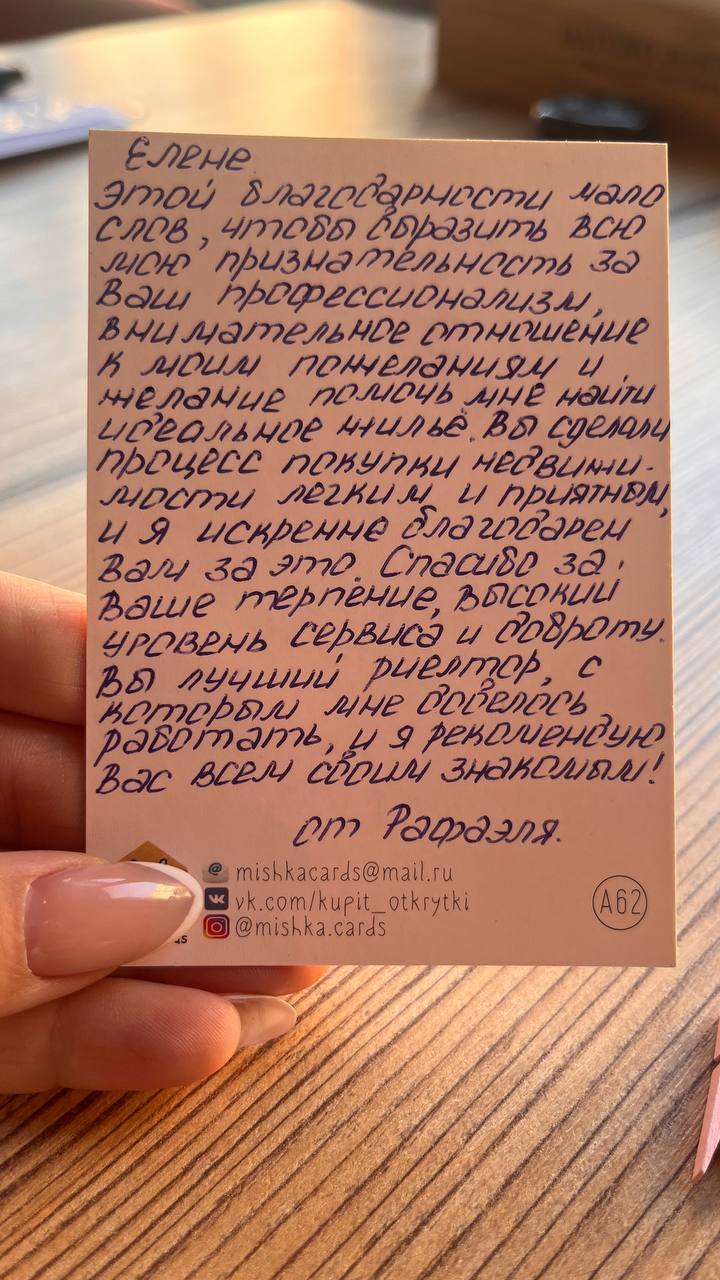 Елене
этой благодарности мало
слов, чтобы выразить всю
мою признательность за
Ваш профессионализм,
внимательное отношение
к моим пожеланиям и
желание помочь мне найти
идеальное жильё. Вы сделали
процесс покупки недвижи-
мости легким и приятным,
и я искренне благодарен
Вам за это. Спасибо за
Ваше терпение, высокий
уровень сервиса и доброту.
Вы лучший риелтор, с
которым мне довелось
работать, и я рекомендую
Вас всем своим знакомым!
от Рафаэля.
mishkacards@mail.ru
vk.com/kupit_otkrytki
@mishka.cards
A62